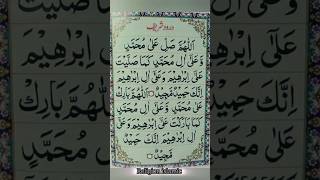 درود شریف
اَللّٰهُمَّ صَلِّ عَلٰی مُحَمَّدٍ
وَّعَلٰٓی اٰلِ مُحَمَّدٍ کَمَا صَلَّیْتَ
عَلٰٓی اِبْرٰهِیْمَ وَعَلٰٓی اٰلِ اِبْرٰهِیْمَ
اِنَّكَ حَمِیْدٌ مَّجِیْدٌ اَللّٰهُمَّ بَارِكْ
عَلٰی مُحَمَّدٍ وَّعَلٰٓی اٰلِ مُحَمَّدٍ
کَمَا بَارَکْتَ عَلٰٓی اِبْرٰهِیْمَ وَعَلٰٓی
اٰلِ اِبْرٰهِیْمَ اِنَّكَ حَمِیْدٌ
مَّجِیْدٌ
Religion islamic